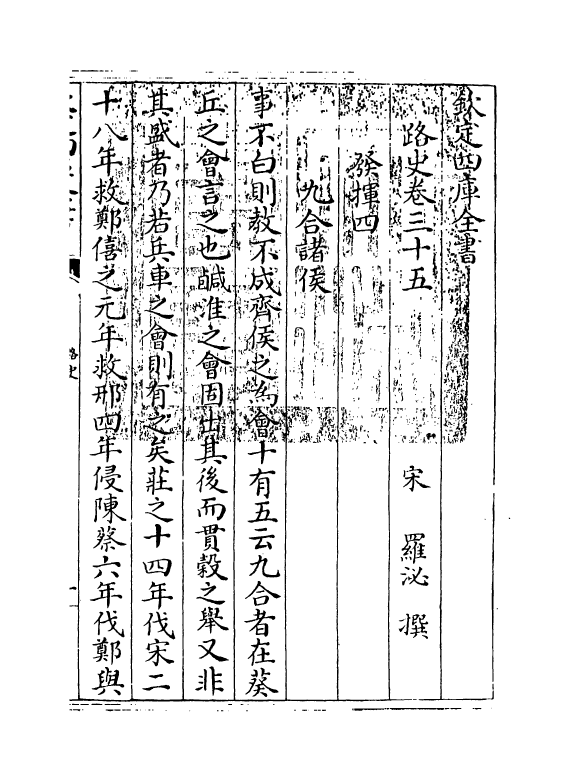 欽定四庫全書
路史卷三十五
宋 羅泌 撰
發揮四
九合諸侯
事不白則教不成齊侯之為會十有五云九合者在葵
丘之會言之也鹹淮之會固出其後而貫穀之舉又非
其盛者乃若兵車之會則有之矣莊之十四年伐宋二
十八年救鄭僖之元年救邢四年侵陳蔡六年伐鄭與
路史